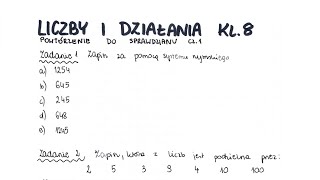 LICZBY I DZIAŁANIA KL.8
POWTÓRZENIE DO SPRAWDZIANU CZ.1
Zadanie 1 Zapisz za pomocą systemu rzymskiego
a) 1254
b) 645
c) 245
d) 648
e) 1245
Zadanie 2. Zapisz, która z liczb jest podzielna przez:
2 5 3 9 4 10 100